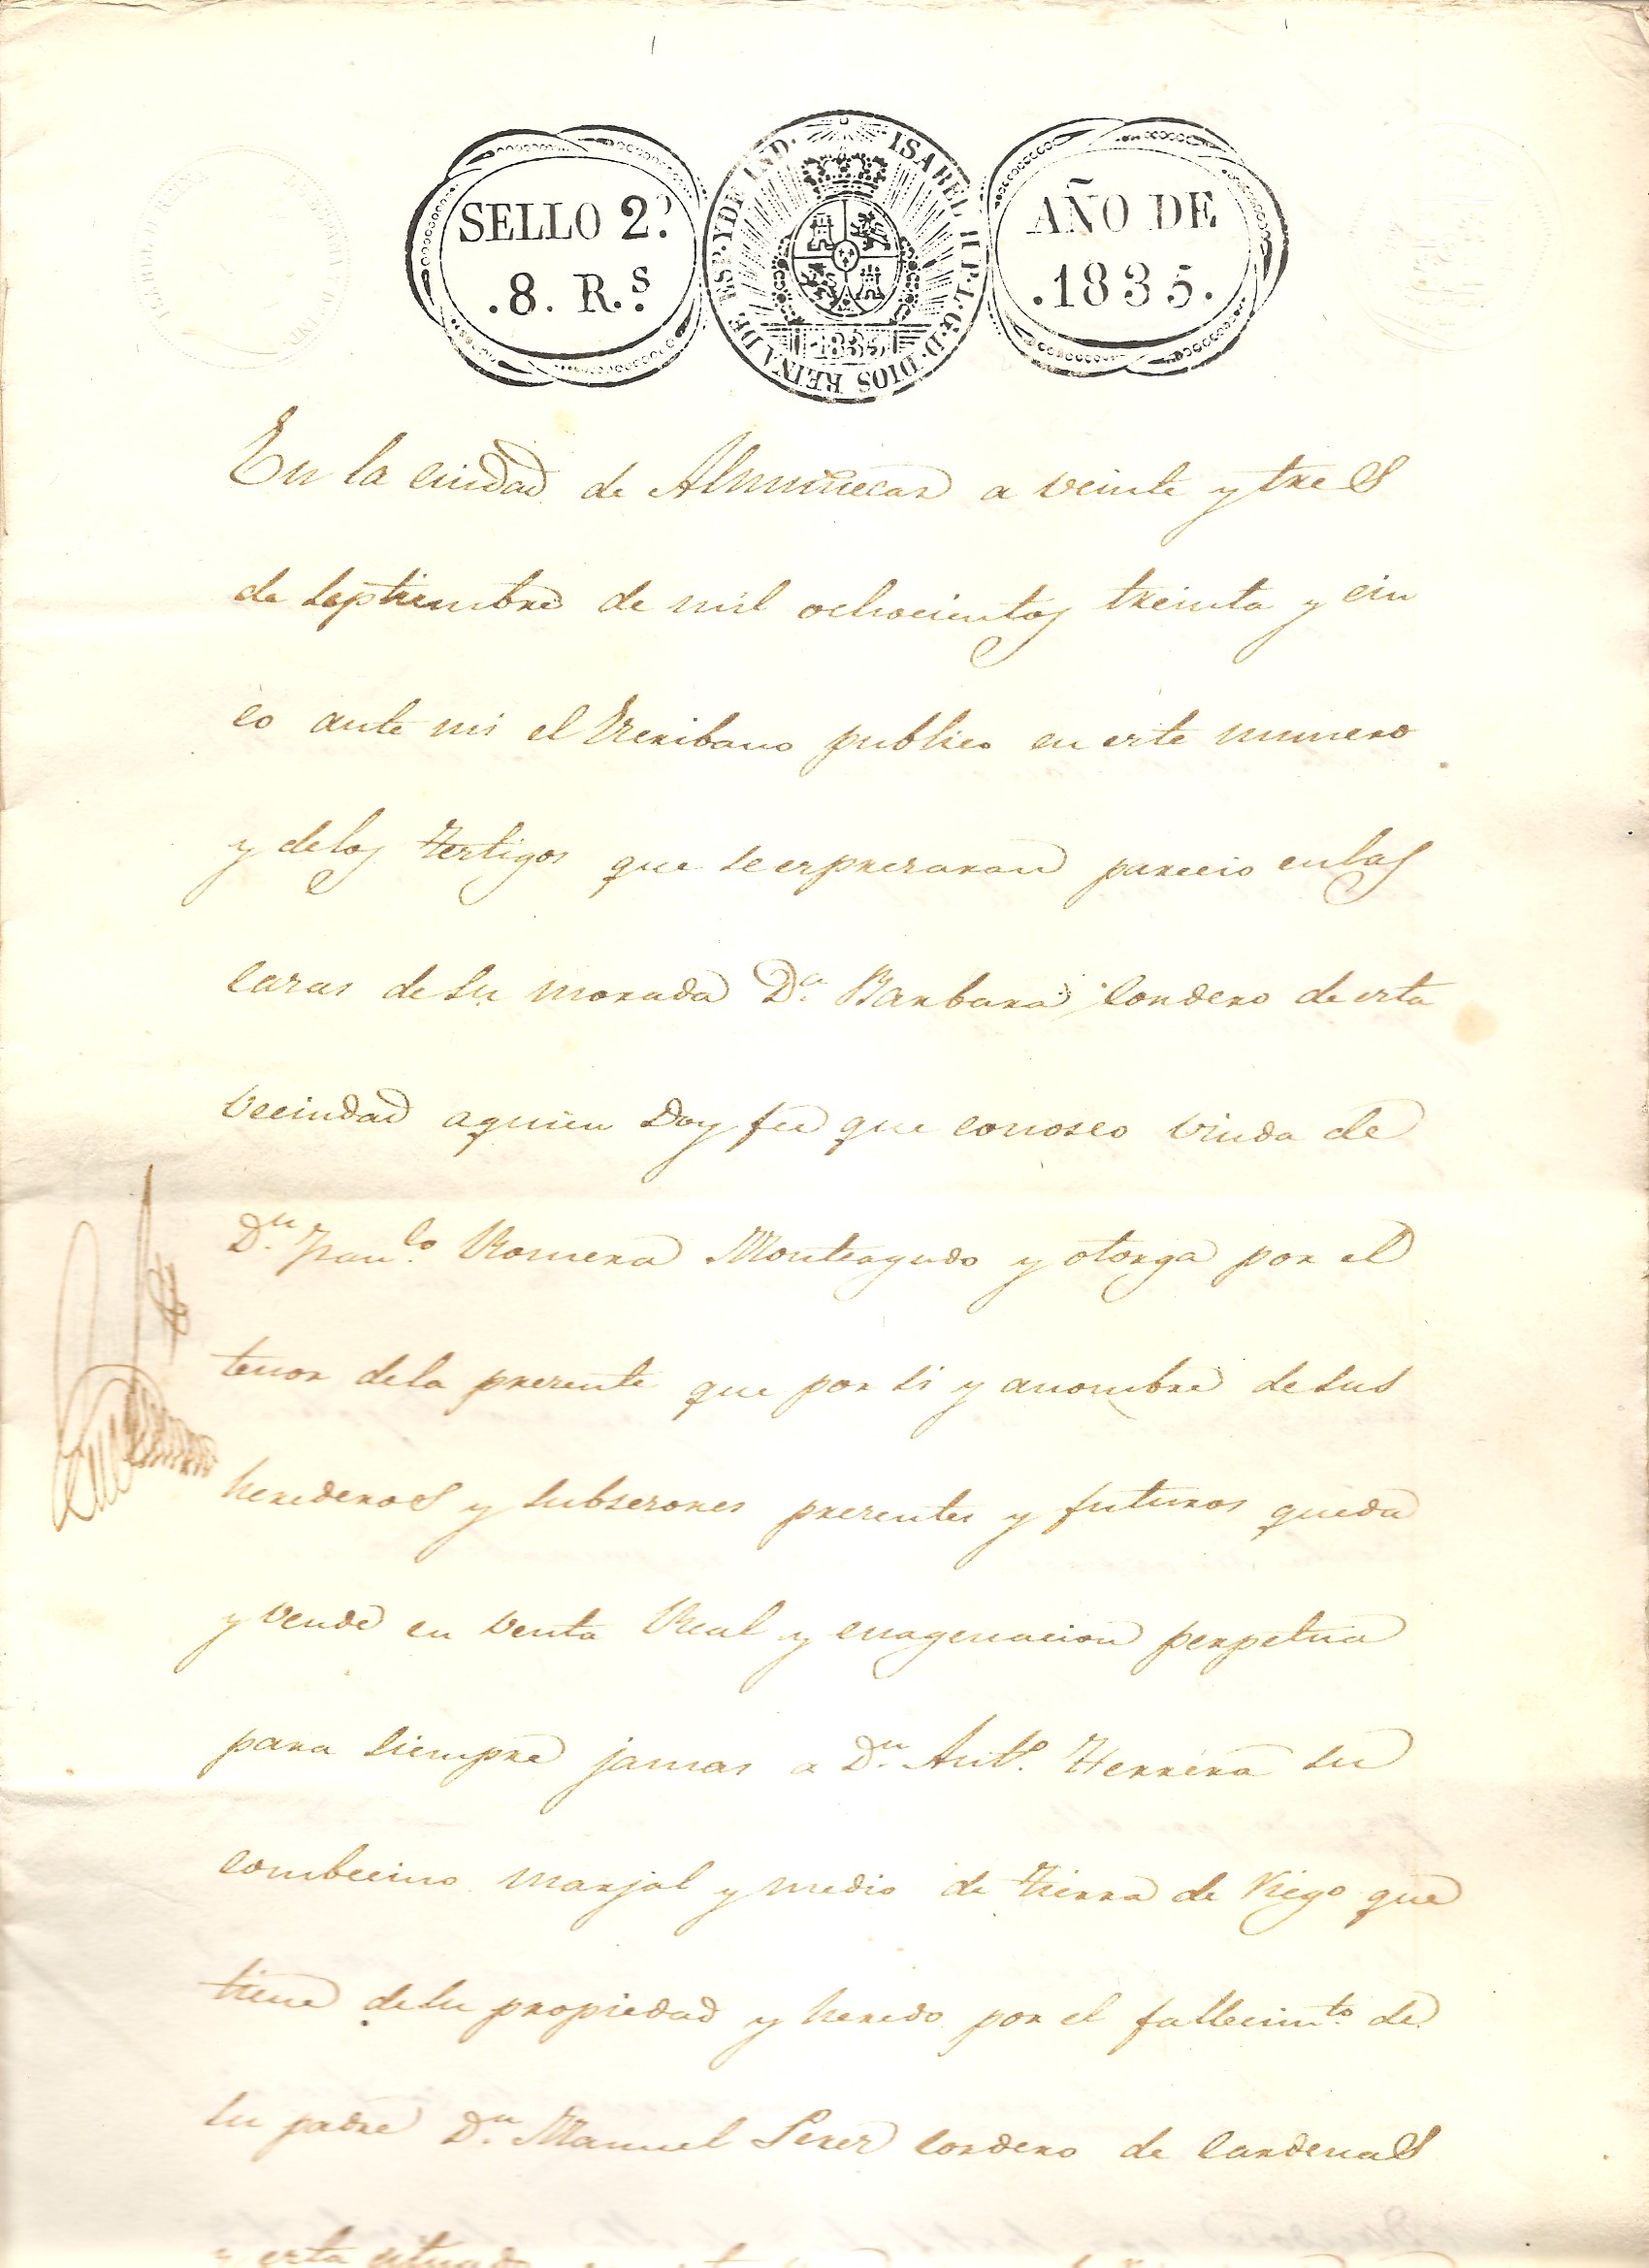 SELLO 2º
.8. R.s
ISABEL II. P. L. G. D. DIOS REINA DE ESP. Y DE IND.
1835
AÑO DE
.1835.
En la ciudad de Almuñecar a veinte y tres
de septiembre de mil ochocientos treinta y cin
co ante mi el Escribano publico en este numero
y delos testigos que se espresaran parecio enlas
casas de su morada D.a Barbara Cordero de esta
vecindad aquien Doy feé que conosco viuda de
D.n Fran.co Romera Monteagudo y otorga por el
tenor dela presente que por si y anombre de sus
herederos y subsesores presentes y futuros queda
y vende en venta Real y enagenacion perpetua
para siempre jamas a D.n Ant.o Herrera su
combecino marjal y medio de tierra de riego que
tiene desu propiedad y heredo por el fallecim.to de
su padre D.n Manuel Perez Cordero de Cardenas
y esta situado